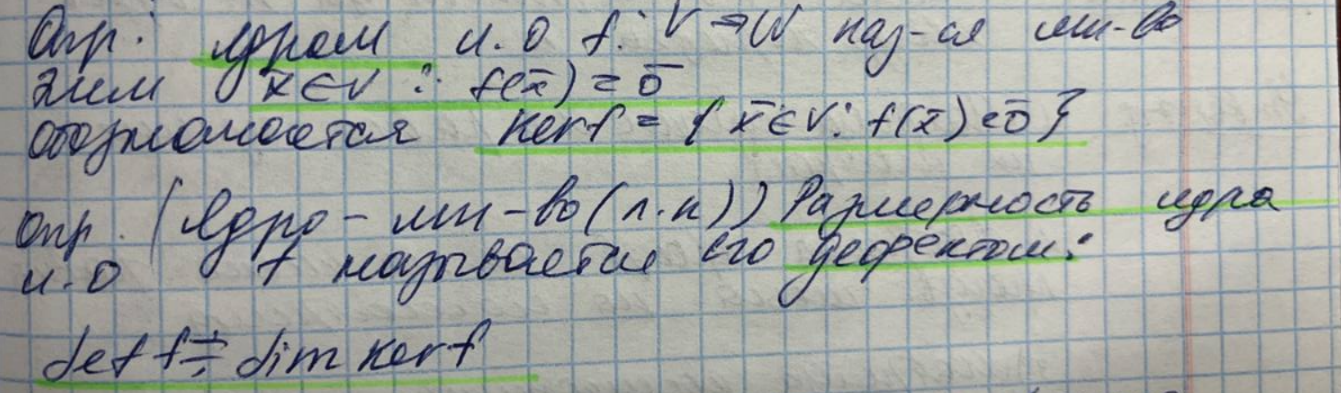 Опр: ядром л.о f: V→W наз-ся мн-во
x̄∈V : f(x̄) = ō
обозначается Ker f = { x̄∈V: f(x̄)=ō }
опр. (Ядро - мн-во (л.п)) Размерность ядра
л.о f называется его дефектом:
def f ⇌ dim ker f